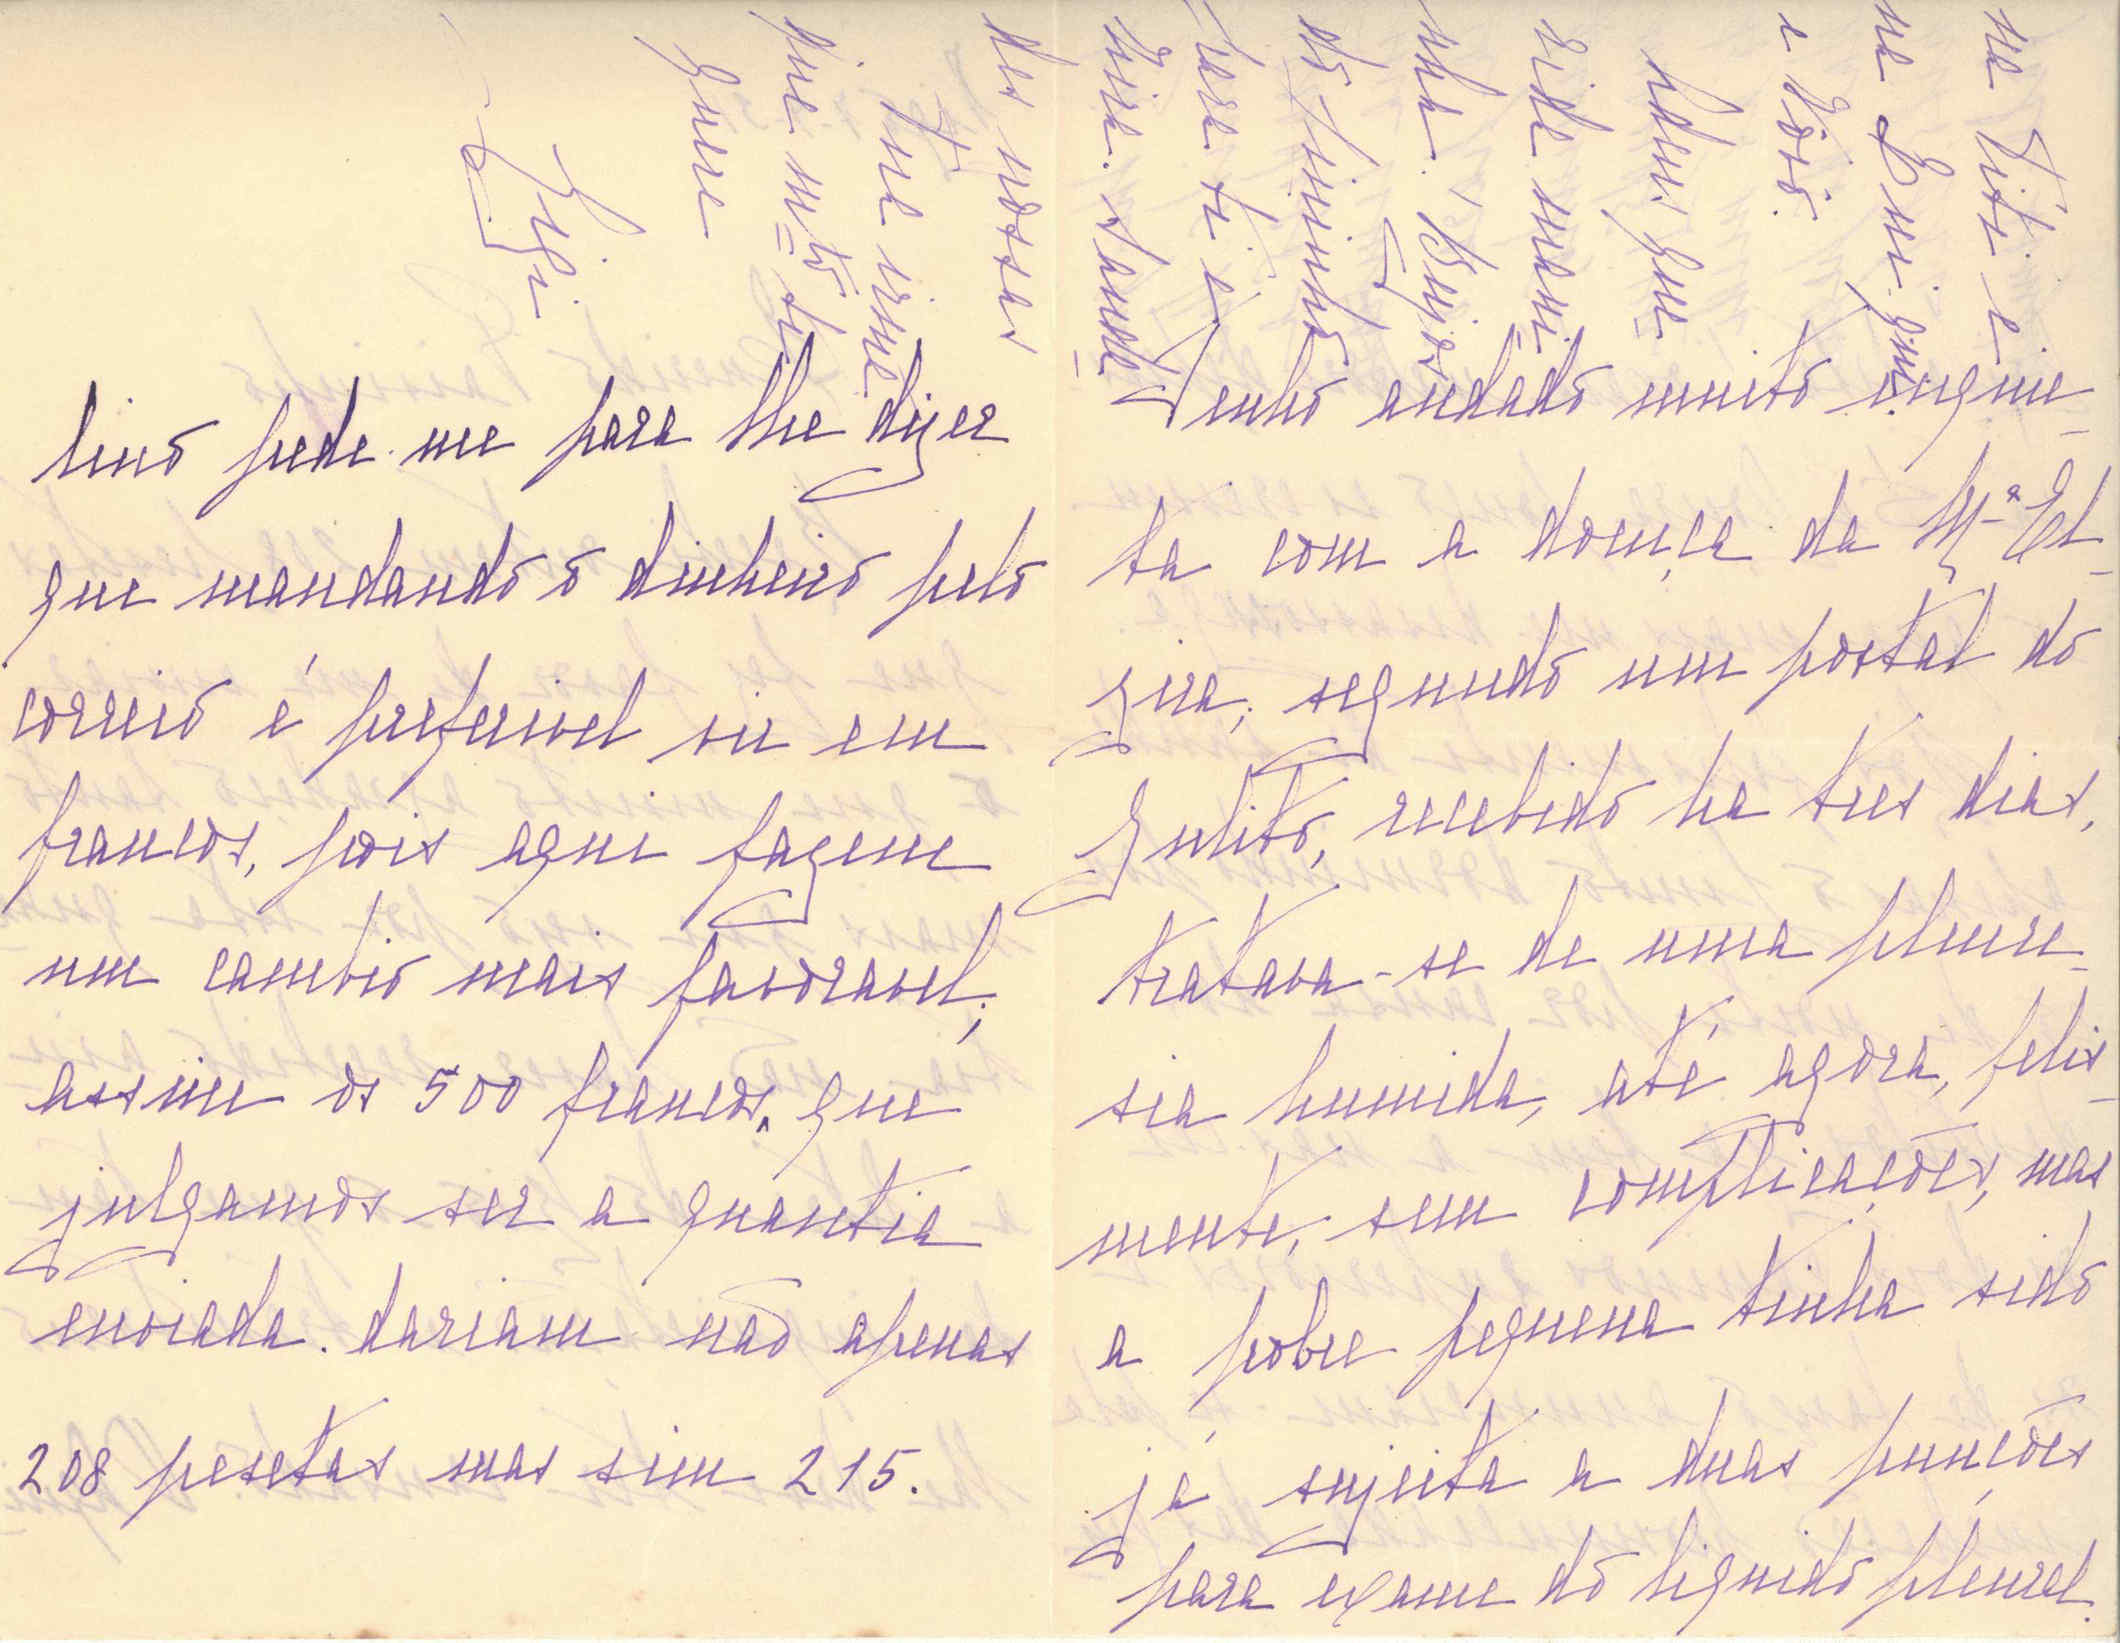 lino pede-me para lhe dizer
que mandando o dinheiro pelo
correio é preferivel vir em
francos, pois aqui fazem
um cambio mais favoravel;
assim os 500 francos, que
julgamos ser a quantia
enviada. dariam não apenas
208 pesetas mas sim 215.
Tenho andado muito inquie-
ta com a doença da Mª El-
zira; segundo um postal do
Julito, recebido ha tres dias,
tratava-se de uma pleure-
sia humida, até agora, felis-
mente, sem complicações, mas
a pobre pequena tinha sido
já sujeita a duas punções
para exame do liquido pleural.
na Titi e
na
e
Adeus que-
rida mami-
nha. Beijos
do Nininho
para ti e
Saude-
des nossas
Tua irmã
que mto te
quere